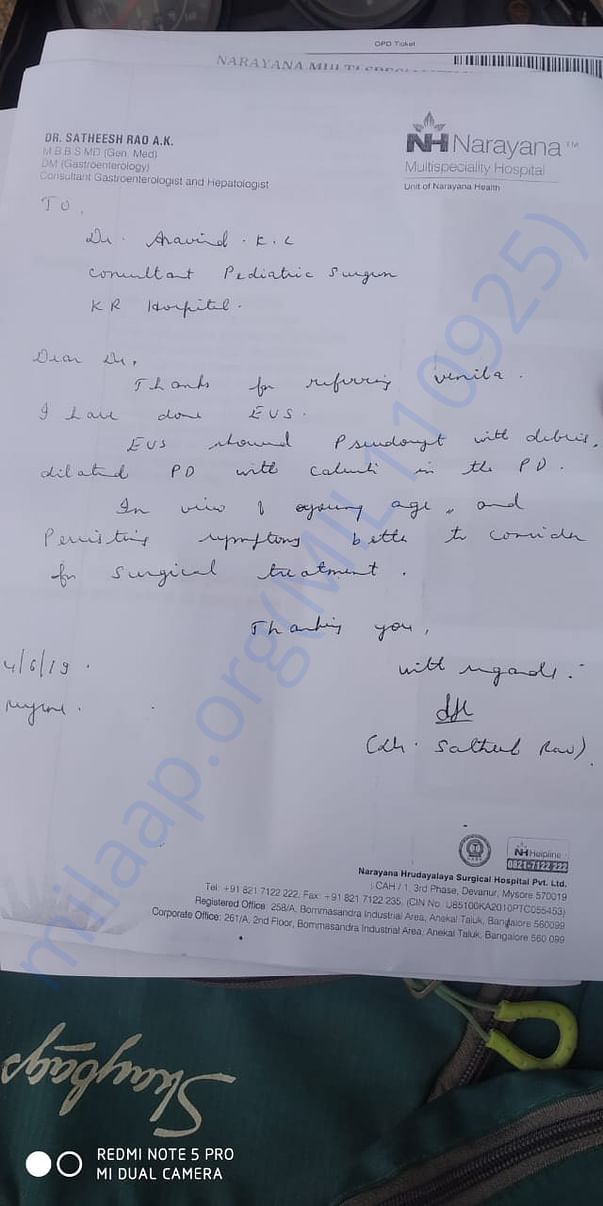 OPD Ticket
NARAYANA MULTISPECI
DR. SATHEESH RAO A.K.
M B B S MD (Gen. Med)
DM (Gastroenterology)
Consultant Gastroenterologist and Hepatologist
NH Narayana TM
Multispeciality Hospital
Unit of Narayana Health
TO,
Dr. Aravind. K. C
Consultant Pediatric Surgeon
KR Hospital.
Dear Dr,
Thanks for referring Venila.
I have done EUS.
EUS showed Pseudocyst with debris,
dilated PD with calculi in the PD.
In view of young age, and
Persisting symptoms better to consider
for surgical treatment.
Thanking you,
4/6/19.
with regards.
Mysore.
(Dr. Satheesh Rao).
NH Helpline
0821-7122 222
Narayana Hrudayalaya Surgical Hospital Pvt. Ltd.
CAH / 1, 3rd Phase, Devanur, Mysore 570019
Tel: +91 821 7122 222, Fax: +91 821 7122 235, (CIN No. U85100KA2010PTC055453)
Registered Office: 258/A, Bommasandra Industrial Area, Anekal Taluk, Bangalore 560099
Corporate Office: 261/A, 2nd Floor, Bommasandra Industrial Area, Anekal Taluk, Bangalore 560 099
milaap.org(MIL1109925)
Skybags
REDMI NOTE 5 PRO
MI DUAL CAMERA